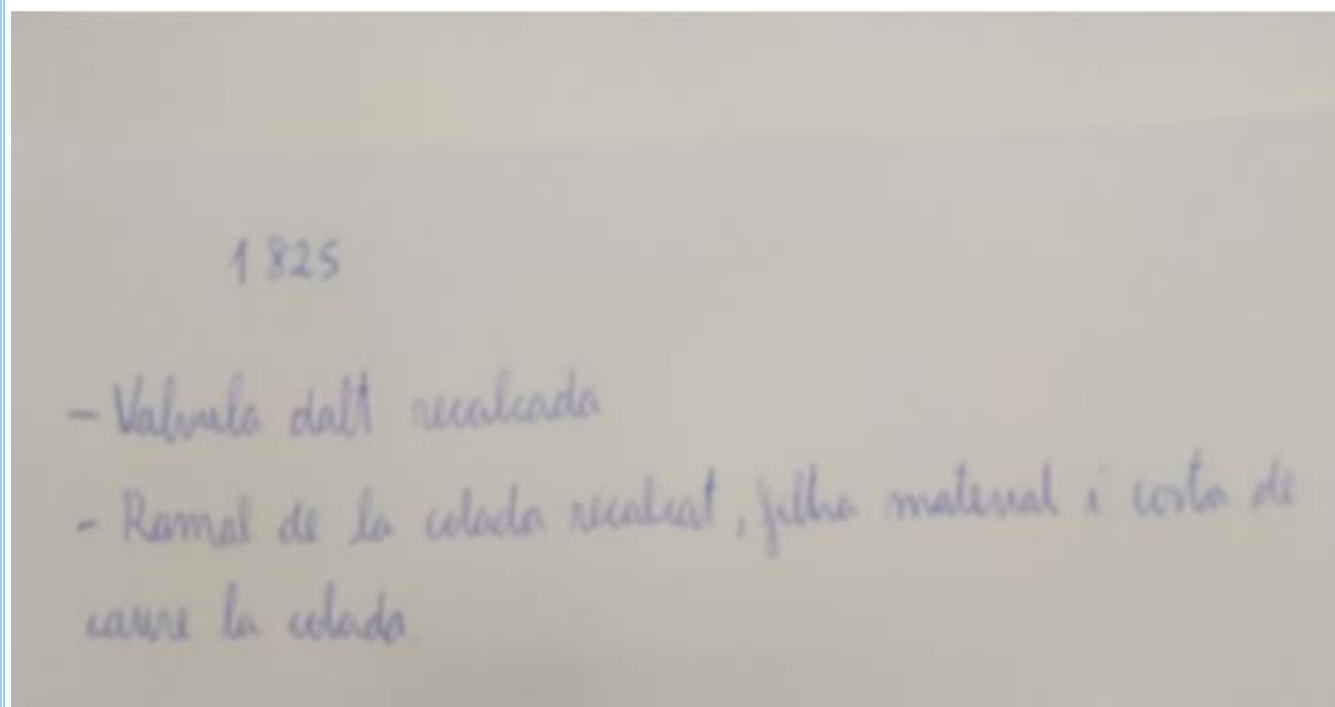 1825
- Valvula dalt recalcada
- Ramal de la colada recalcat, filtra material i costa de
caure la colada